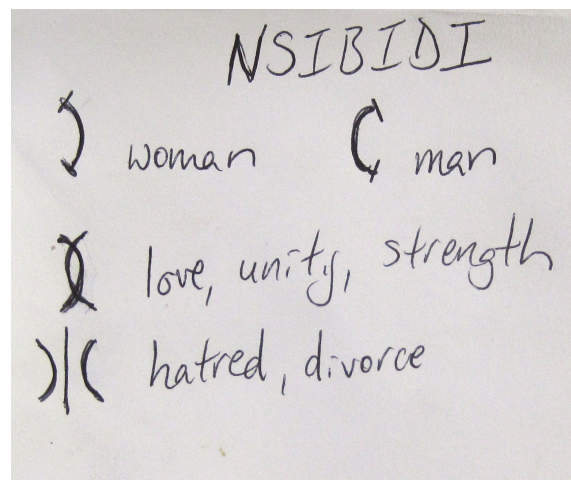 NSIBIDI
woman man
love, unity, strength
hatred, divorce